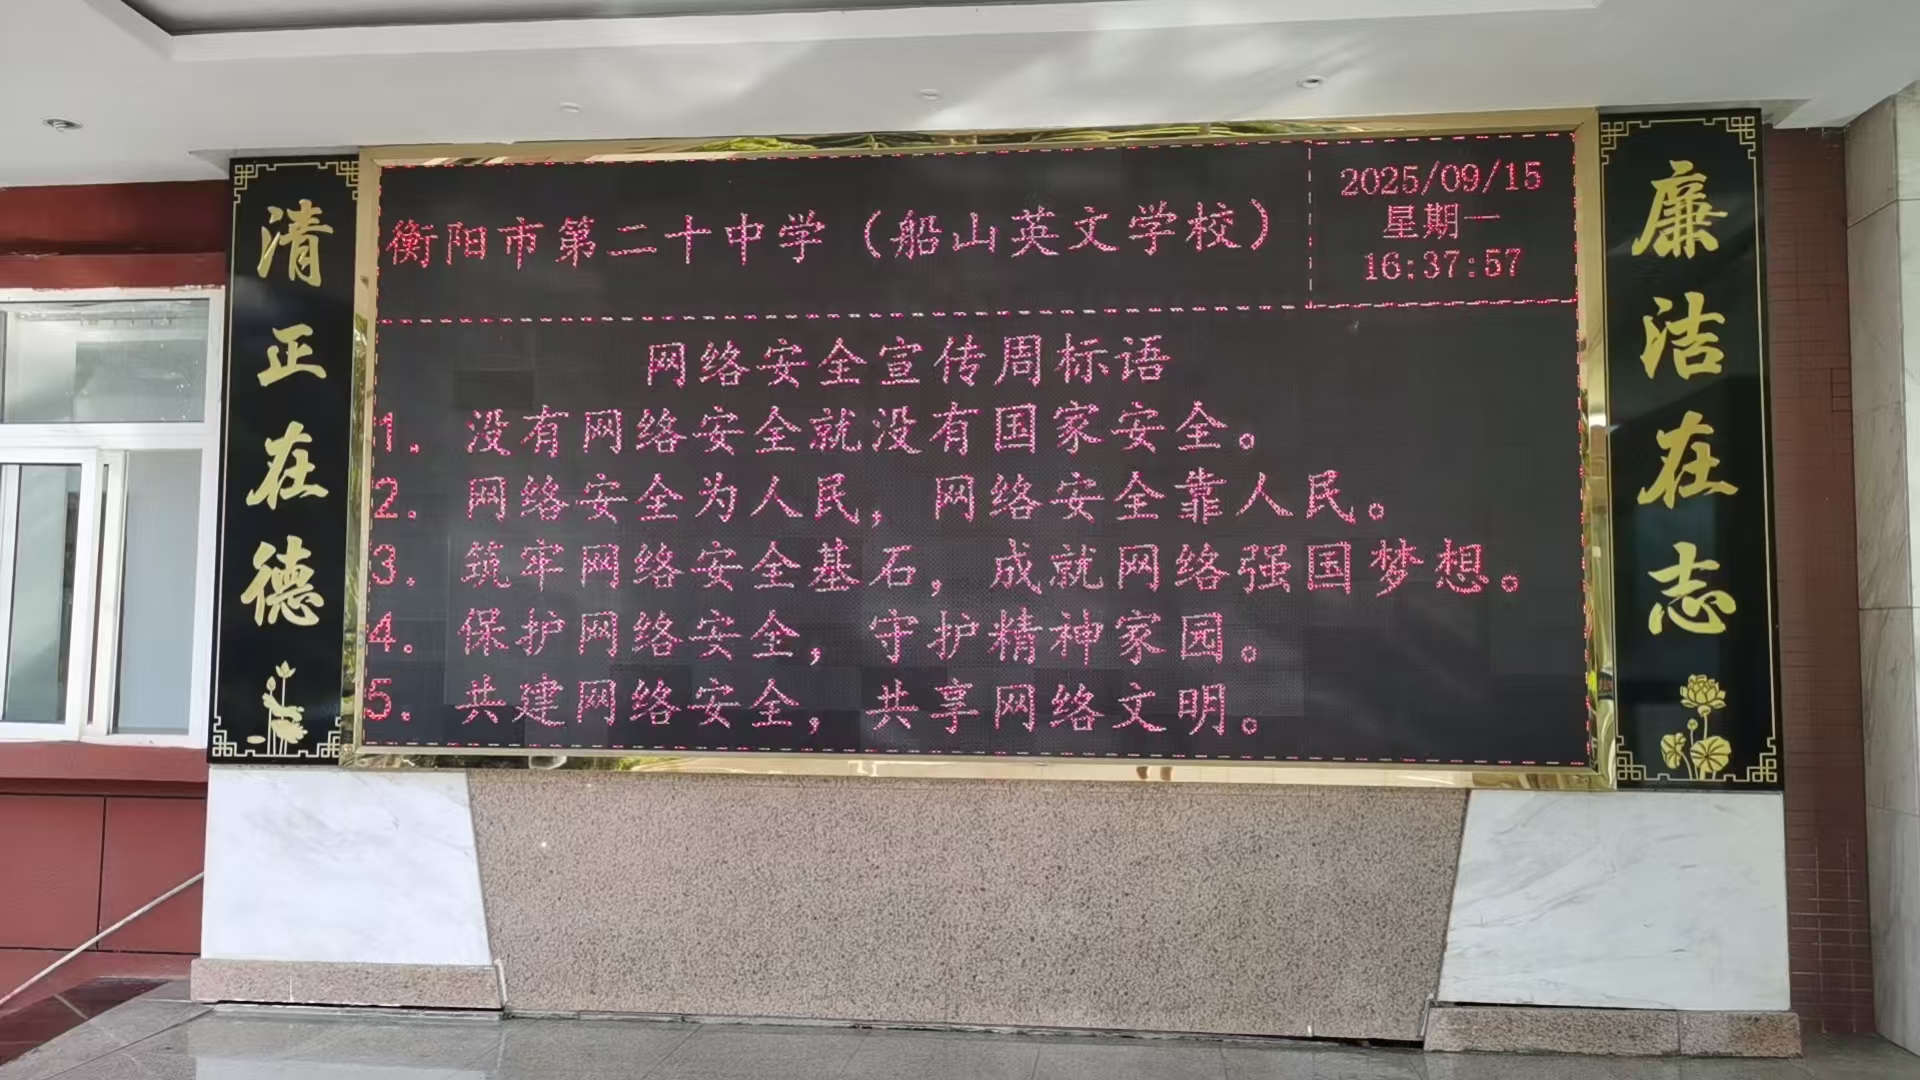 清正在德
衡阳市第二十中学（船山英文学校）
2025/09/15
星期一
16:37:57
网络安全宣传周标语
1. 没有网络安全就没有国家安全。
2. 网络安全为人民，网络安全靠人民。
3. 筑牢网络安全基石，成就网络强国梦想。
4. 保护网络安全，守护精神家园。
5. 共建网络安全，共享网络文明。
廉洁在志